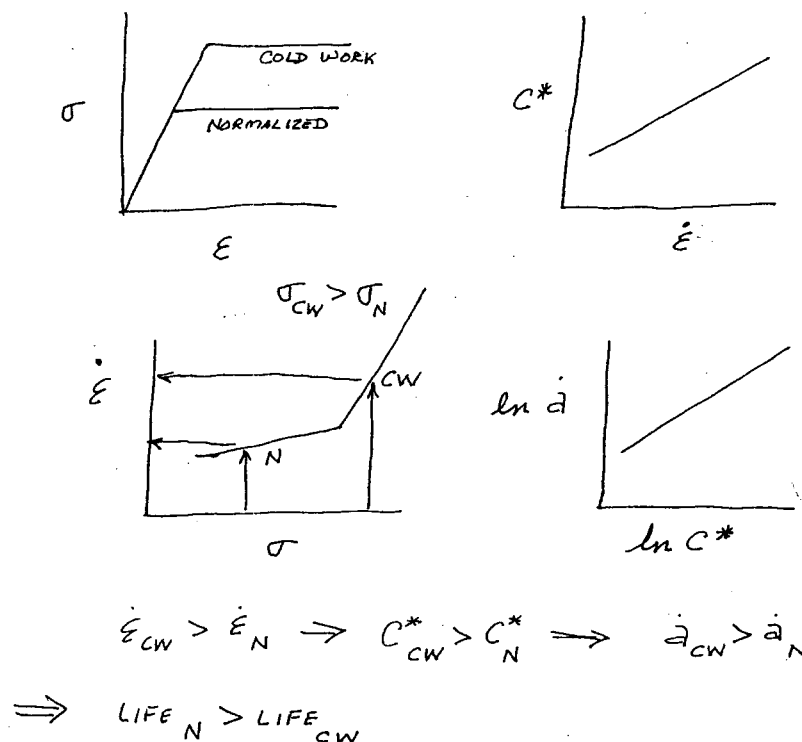 COLD WORK
σ
NORMALIZED
ε
C*
ε̇
σ_CW > σ_N
ε̇
CW
N
σ
ln ȧ
ln C*
ε̇_CW > ε̇_N ⇒ C*_CW > C*_N ⇒ ȧ_CW > ȧ_N
⇒ LIFE_N > LIFE_CW